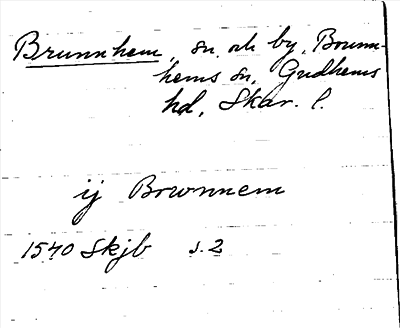 Brunnhem, sn. och by, Brunn-
hems sn, Gudhems
hd, Skar. l.
ij Brwnnem
1540 Skjb s. 2